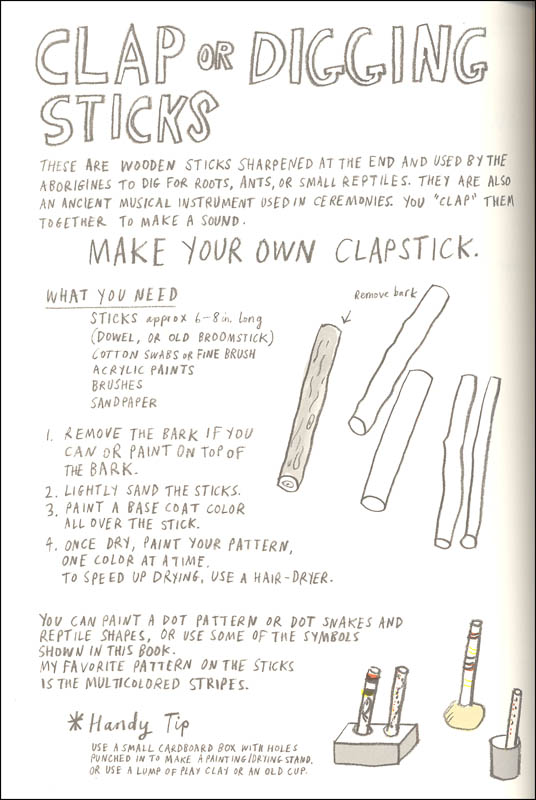 CLAP OR DIGGING
STICKS
THESE ARE WOODEN STICKS SHARPENED AT THE END AND USED BY THE
ABORIGINES TO DIG FOR ROOTS, ANTS, OR SMALL REPTILES. THEY ARE ALSO
AN ANCIENT MUSICAL INSTRUMENT USED IN CEREMONIES. YOU "CLAP" THEM
TOGETHER TO MAKE A SOUND.
MAKE YOUR OWN CLAPSTICK.
WHAT YOU NEED
STICKS approx 6-8 in. long
(DOWEL, OR OLD BROOMSTICK)
COTTON SWABS OR FINE BRUSH
ACRYLIC PAINTS
BRUSHES
SANDPAPER
Remove bark
1. REMOVE THE BARK IF YOU
CAN OR PAINT ON TOP OF
THE BARK.
2. LIGHTLY SAND THE STICKS.
3. PAINT A BASE COAT COLOR
ALL OVER THE STICK.
4. ONCE DRY, PAINT YOUR PATTERN,
ONE COLOR AT A TIME.
TO SPEED UP DRYING, USE A HAIR-DRYER.
YOU CAN PAINT A DOT PATTERN OR DOT SNAKES AND
REPTILE SHAPES, OR USE SOME OF THE SYMBOLS
SHOWN IN THIS BOOK.
MY FAVORITE PATTERN ON THE STICKS
IS THE MULTICOLORED STRIPES.
* Handy Tip
USE A SMALL CARDBOARD BOX WITH HOLES
PUNCHED IN TO MAKE A PAINTING/DRYING STAND.
OR USE A LUMP OF PLAY CLAY OR AN OLD CUP.